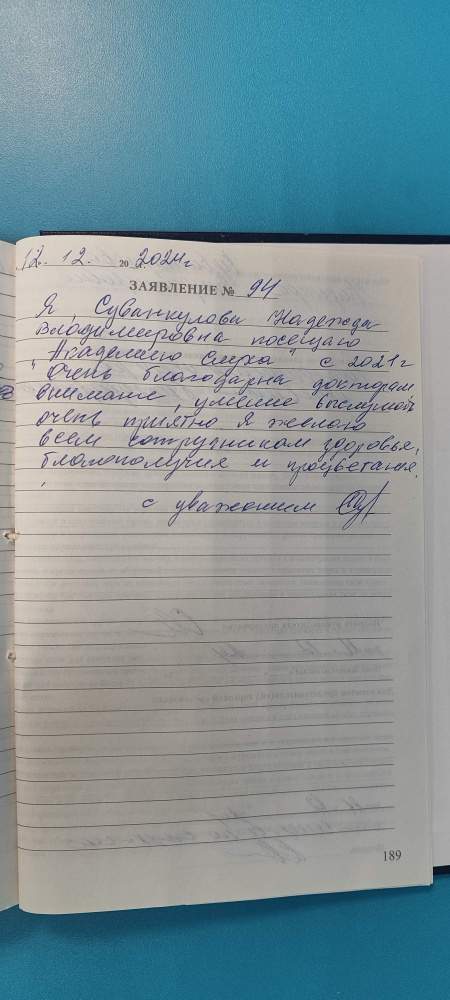 12. 12. 20 2024 г
ЗАЯВЛЕНИЕ № 94
Я, Суванкулова Надежда
Владимировна посещаю
"Академию слуха" с 2021 г
Очень благодарна докторам
внимание, умение выслушать
очень приятно Я желаю
всем сотрудникам здоровья,
благополучия и процветания.
с уважением
189